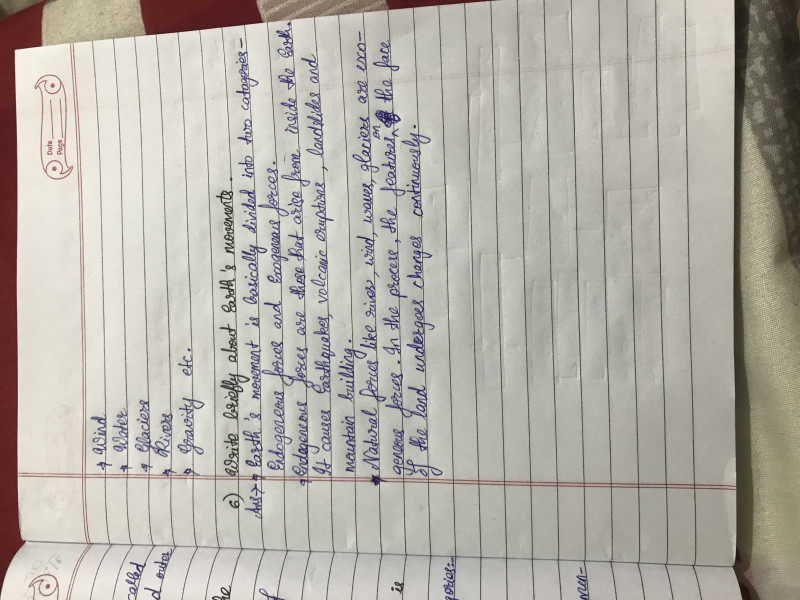 Date
Page
→ Wind
→ Water
→ Glaciers
→ Rivers
→ Gravity etc.
6) Write briefly about Earth's movements.
Ans→ → Earth's movement is basically divided into two categories -
Endogeneous forces and Exogeneous forces.
→ Endogeneous forces are those that arise from inside the Earth.
It causes Earthquakes, volcanic eruptions, landslides and
mountain building.
→ Natural forces like river, wind, waves, glaciers are exo-
geneous forces. In the process, the features on the face
of the land undergoes changes continuously.
called
d outer
he
f
is
gories:-
men-